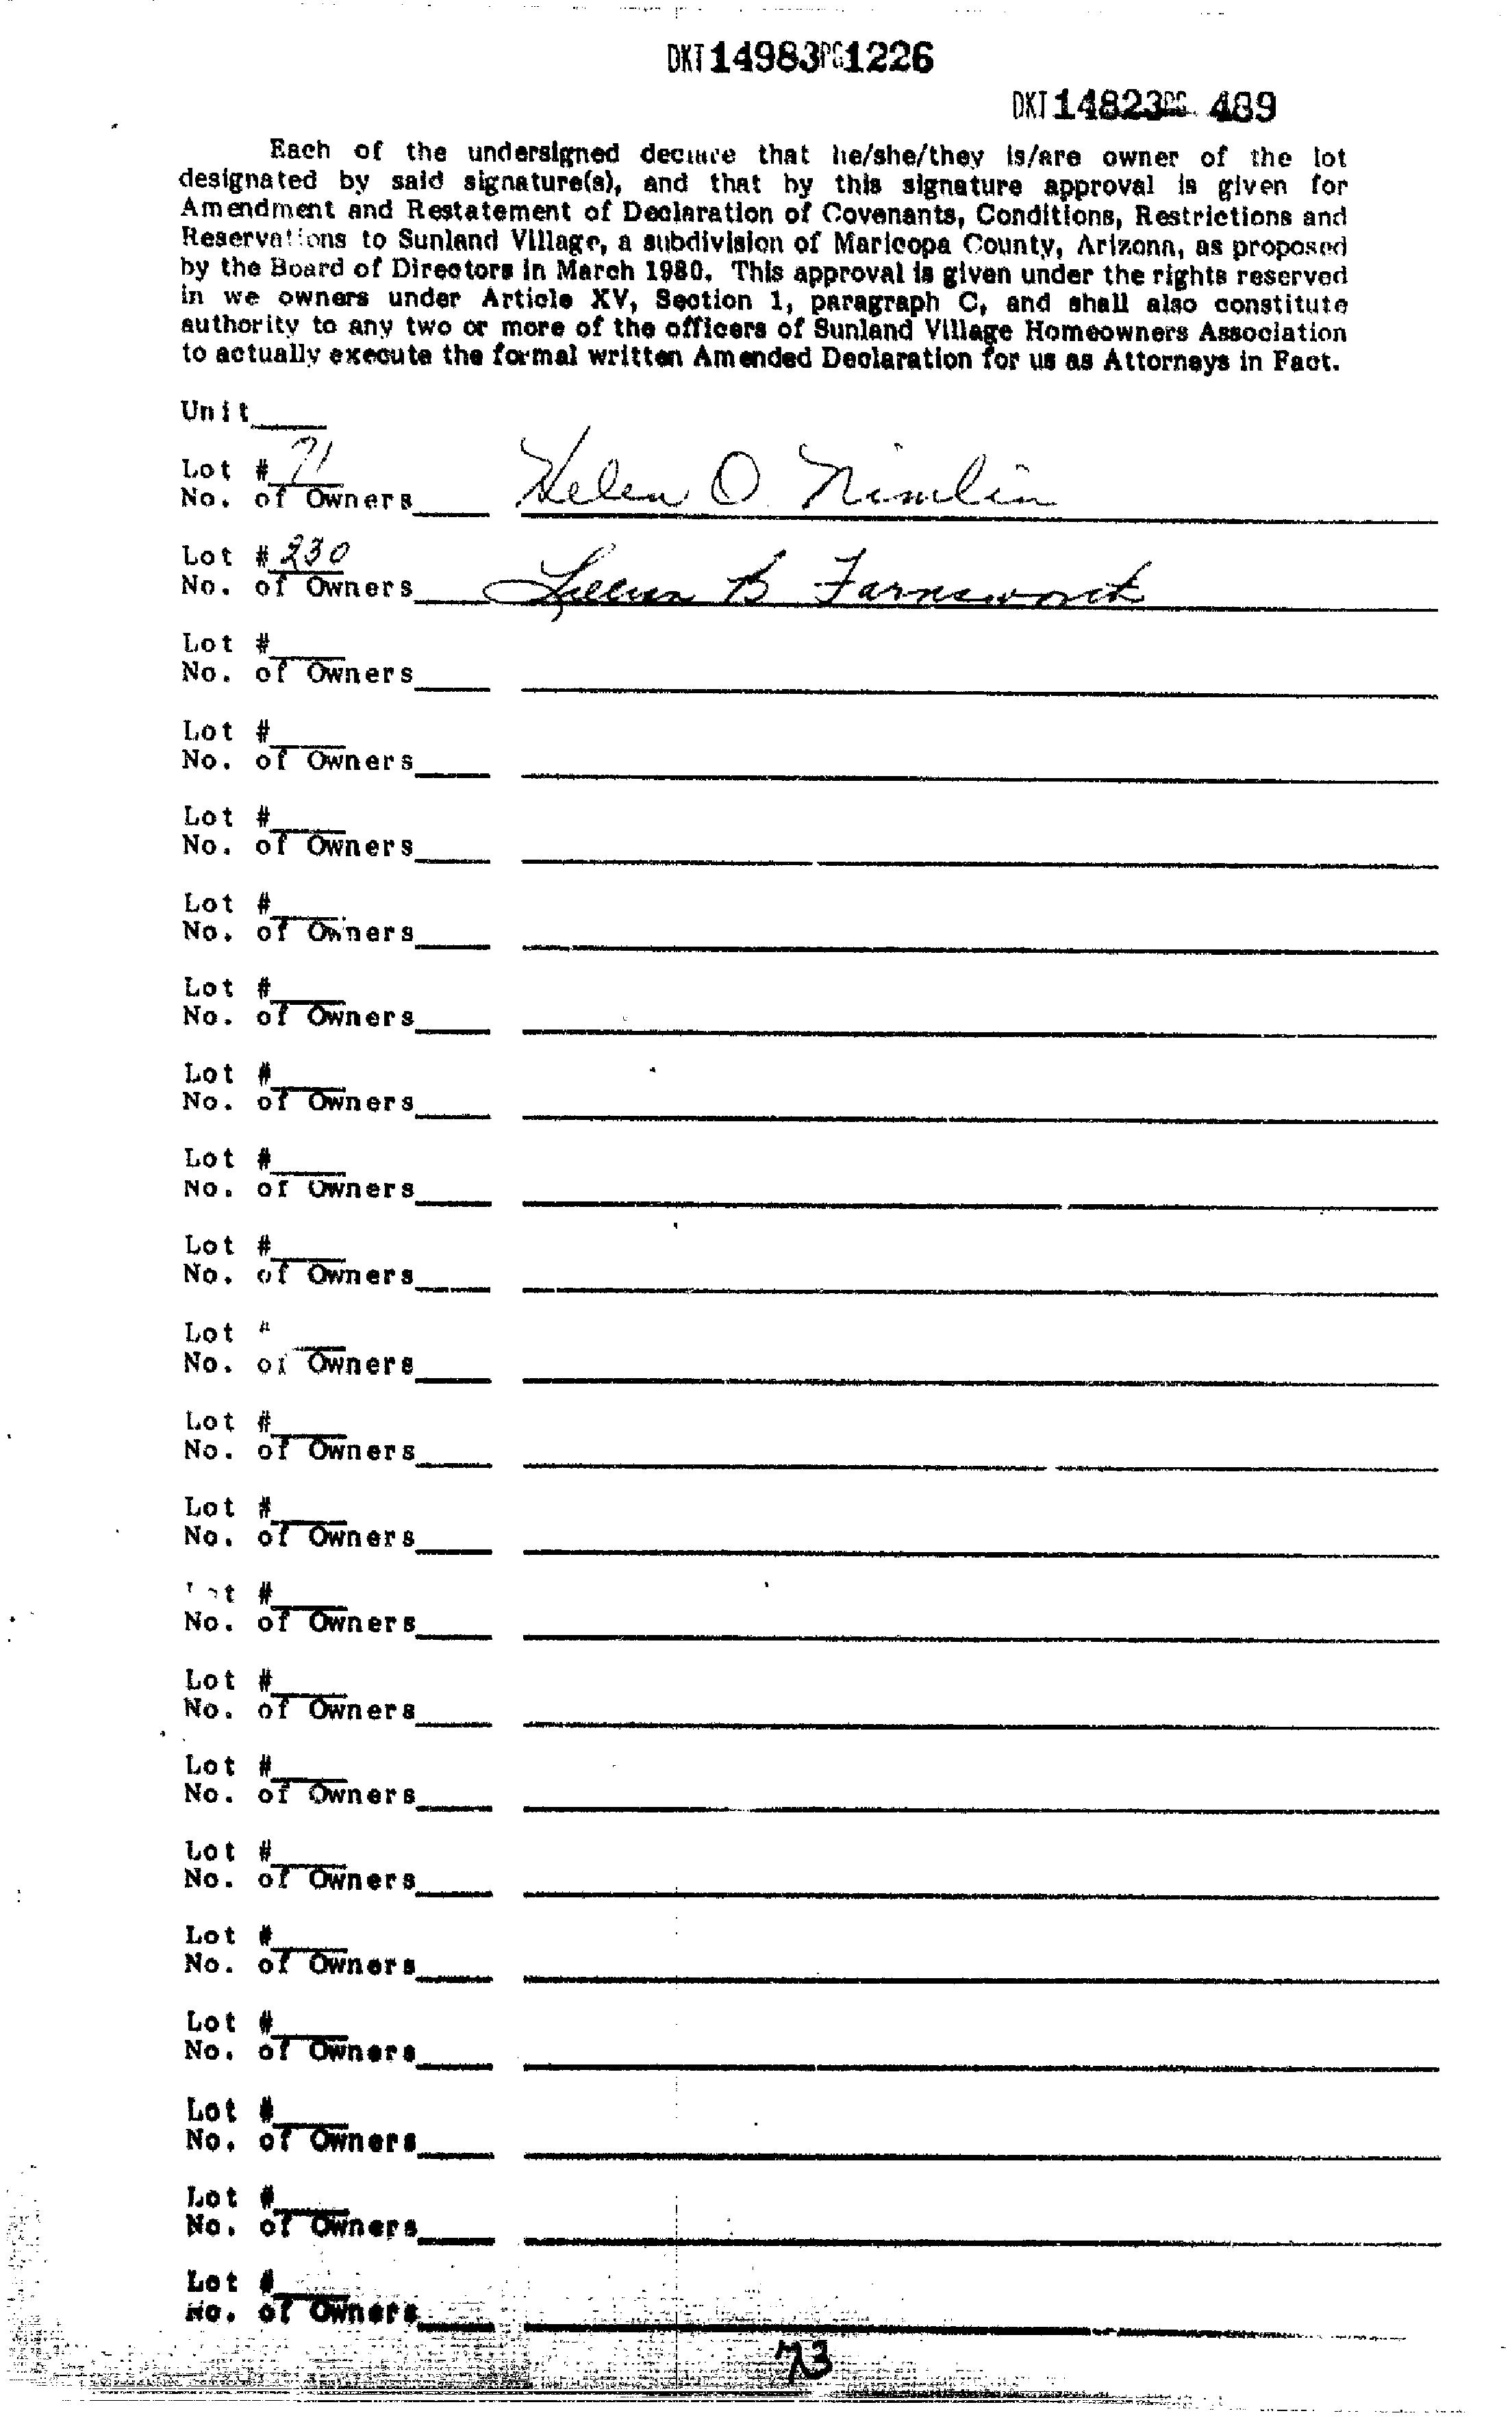 DKT 14983 PG 1226
DKT 14823 PG 489
Each of the undersigned declare that he/she/they is/are owner of the lot
designated by said signature(s), and that by this signature approval is given for
Amendment and Restatement of Declaration of Covenants, Conditions, Restrictions and
Reservations to Sunland Village, a subdivision of Maricopa County, Arizona, as proposed
by the Board of Directors in March 1980. This approval is given under the rights reserved
in we owners under Article XV, Section 1, paragraph C, and shall also constitute
authority to any two or more of the officers of Sunland Village Homeowners Association
to actually execute the formal written Amended Declaration for us as Attorneys in Fact.
Unit____
Lot # 71
No. of Owners____ Helen O. Nimlin
Lot # 230
No. of Owners____ Lillian B Farnsworth
Lot #____
No. of Owners____
Lot #____
No. of Owners____
Lot #____
No. of Owners____
Lot #____
No. of Owners____
Lot #____
No. of Owners____
Lot #____
No. of Owners____
Lot #____
No. of Owners____
Lot #____
No. of Owners____
Lot #____
No. of Owners____
Lot #____
No. of Owners____
Lot #____
No. of Owners____
Lot #____
No. of Owners____
Lot #____
No. of Owners____
Lot #____
No. of Owners____
Lot #____
No. of Owners____
Lot #____
No. of Owners____
Lot #____
No. of Owners____
Lot #____
No. of Owners____
Lot #____
No. of Owners____
Lot #____
No. of Owners____
73